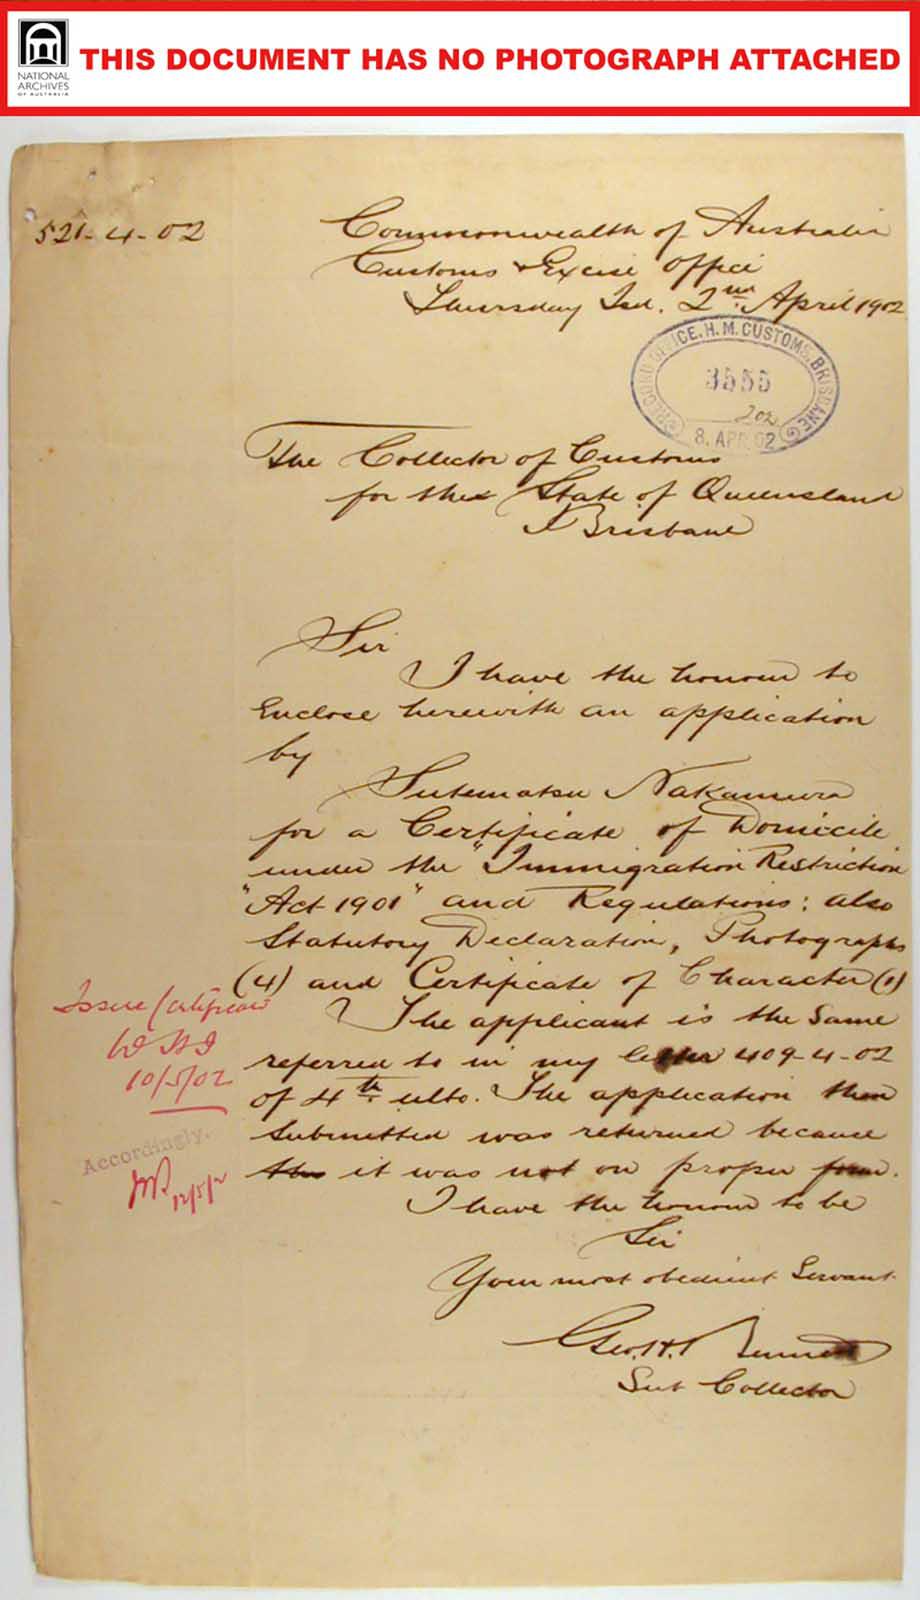 NATIONAL
ARCHIVES
OF AUSTRALIA
THIS DOCUMENT HAS NO PHOTOGRAPH ATTACHED
521-4-02
Commonwealth of Australia
Customs & Excise Office
Thursday Isd. 2nd April 1902
RECORD OFFICE. H. M. CUSTOMS, BRISBANE
3555
202
8. APR 02
The Collector of Customs
for the State of Queensland
Brisbane
Sir
I have the honour to
Enclose herewith an application
by
Sutematsu Nakamura
for a Certificate of Domicile
under the "Immigration Restriction
"Act 1901" and Regulations: also
Statutory Declaration, Photographs
(4) and Certificate of Character (1)
The applicant is the same
referred to in my letter 409-4-02
of 4th ulto. The application then
submitted was returned because
it was not on proper form.
I have the honour to be
Sir
Your most obedient Servant
Geo. H. Bennett
Sub Collector
Issue Certificate
10/5/02
Accordingly.
12/5/2